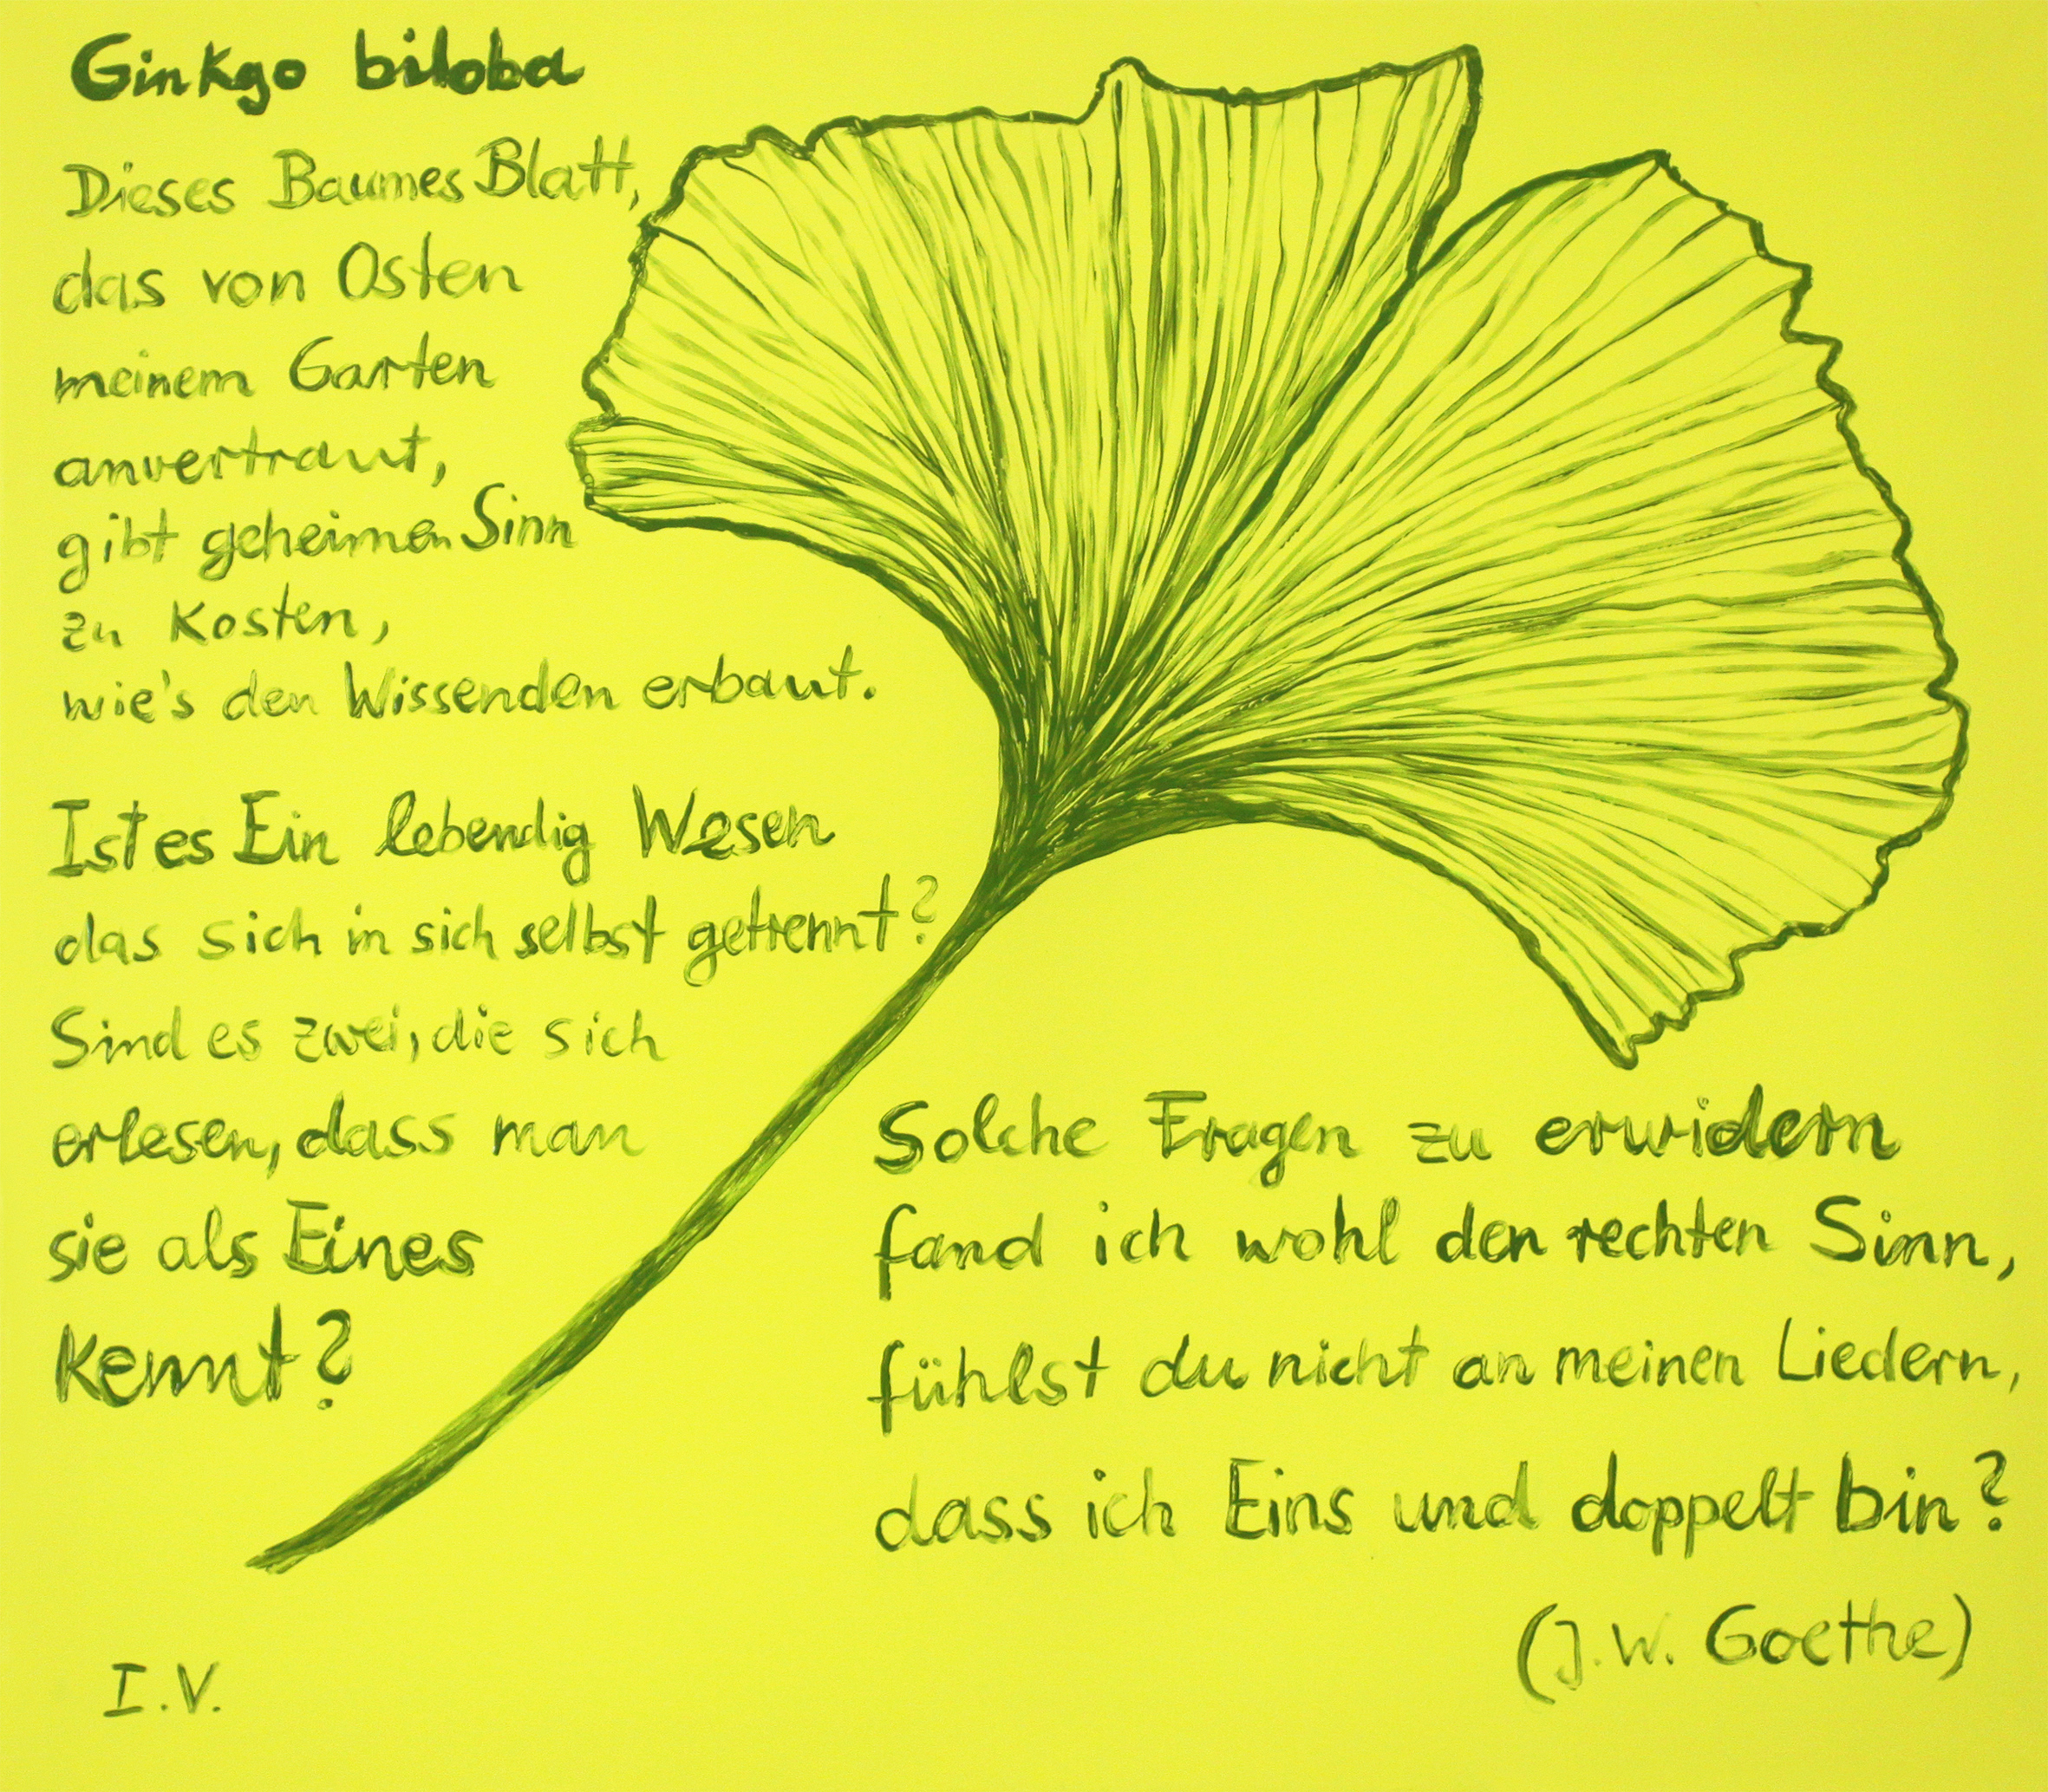 Ginkgo biloba
Dieses Baumes Blatt,
das von Osten
meinem Garten
anvertraut,
gibt geheimen Sinn
zu kosten,
wie's den Wissenden erbaut.
Ist es Ein lebendig Wesen
das sich in sich selbst getrennt?
Sind es zwei, die sich
erlesen, dass man
sie als Eines
kennt?
Solche Fragen zu erwidern
fand ich wohl den rechten Sinn,
fühlst du nicht an meinen Liedern,
dass ich Eins und doppelt bin?
(J.W. Goethe)
I.V.